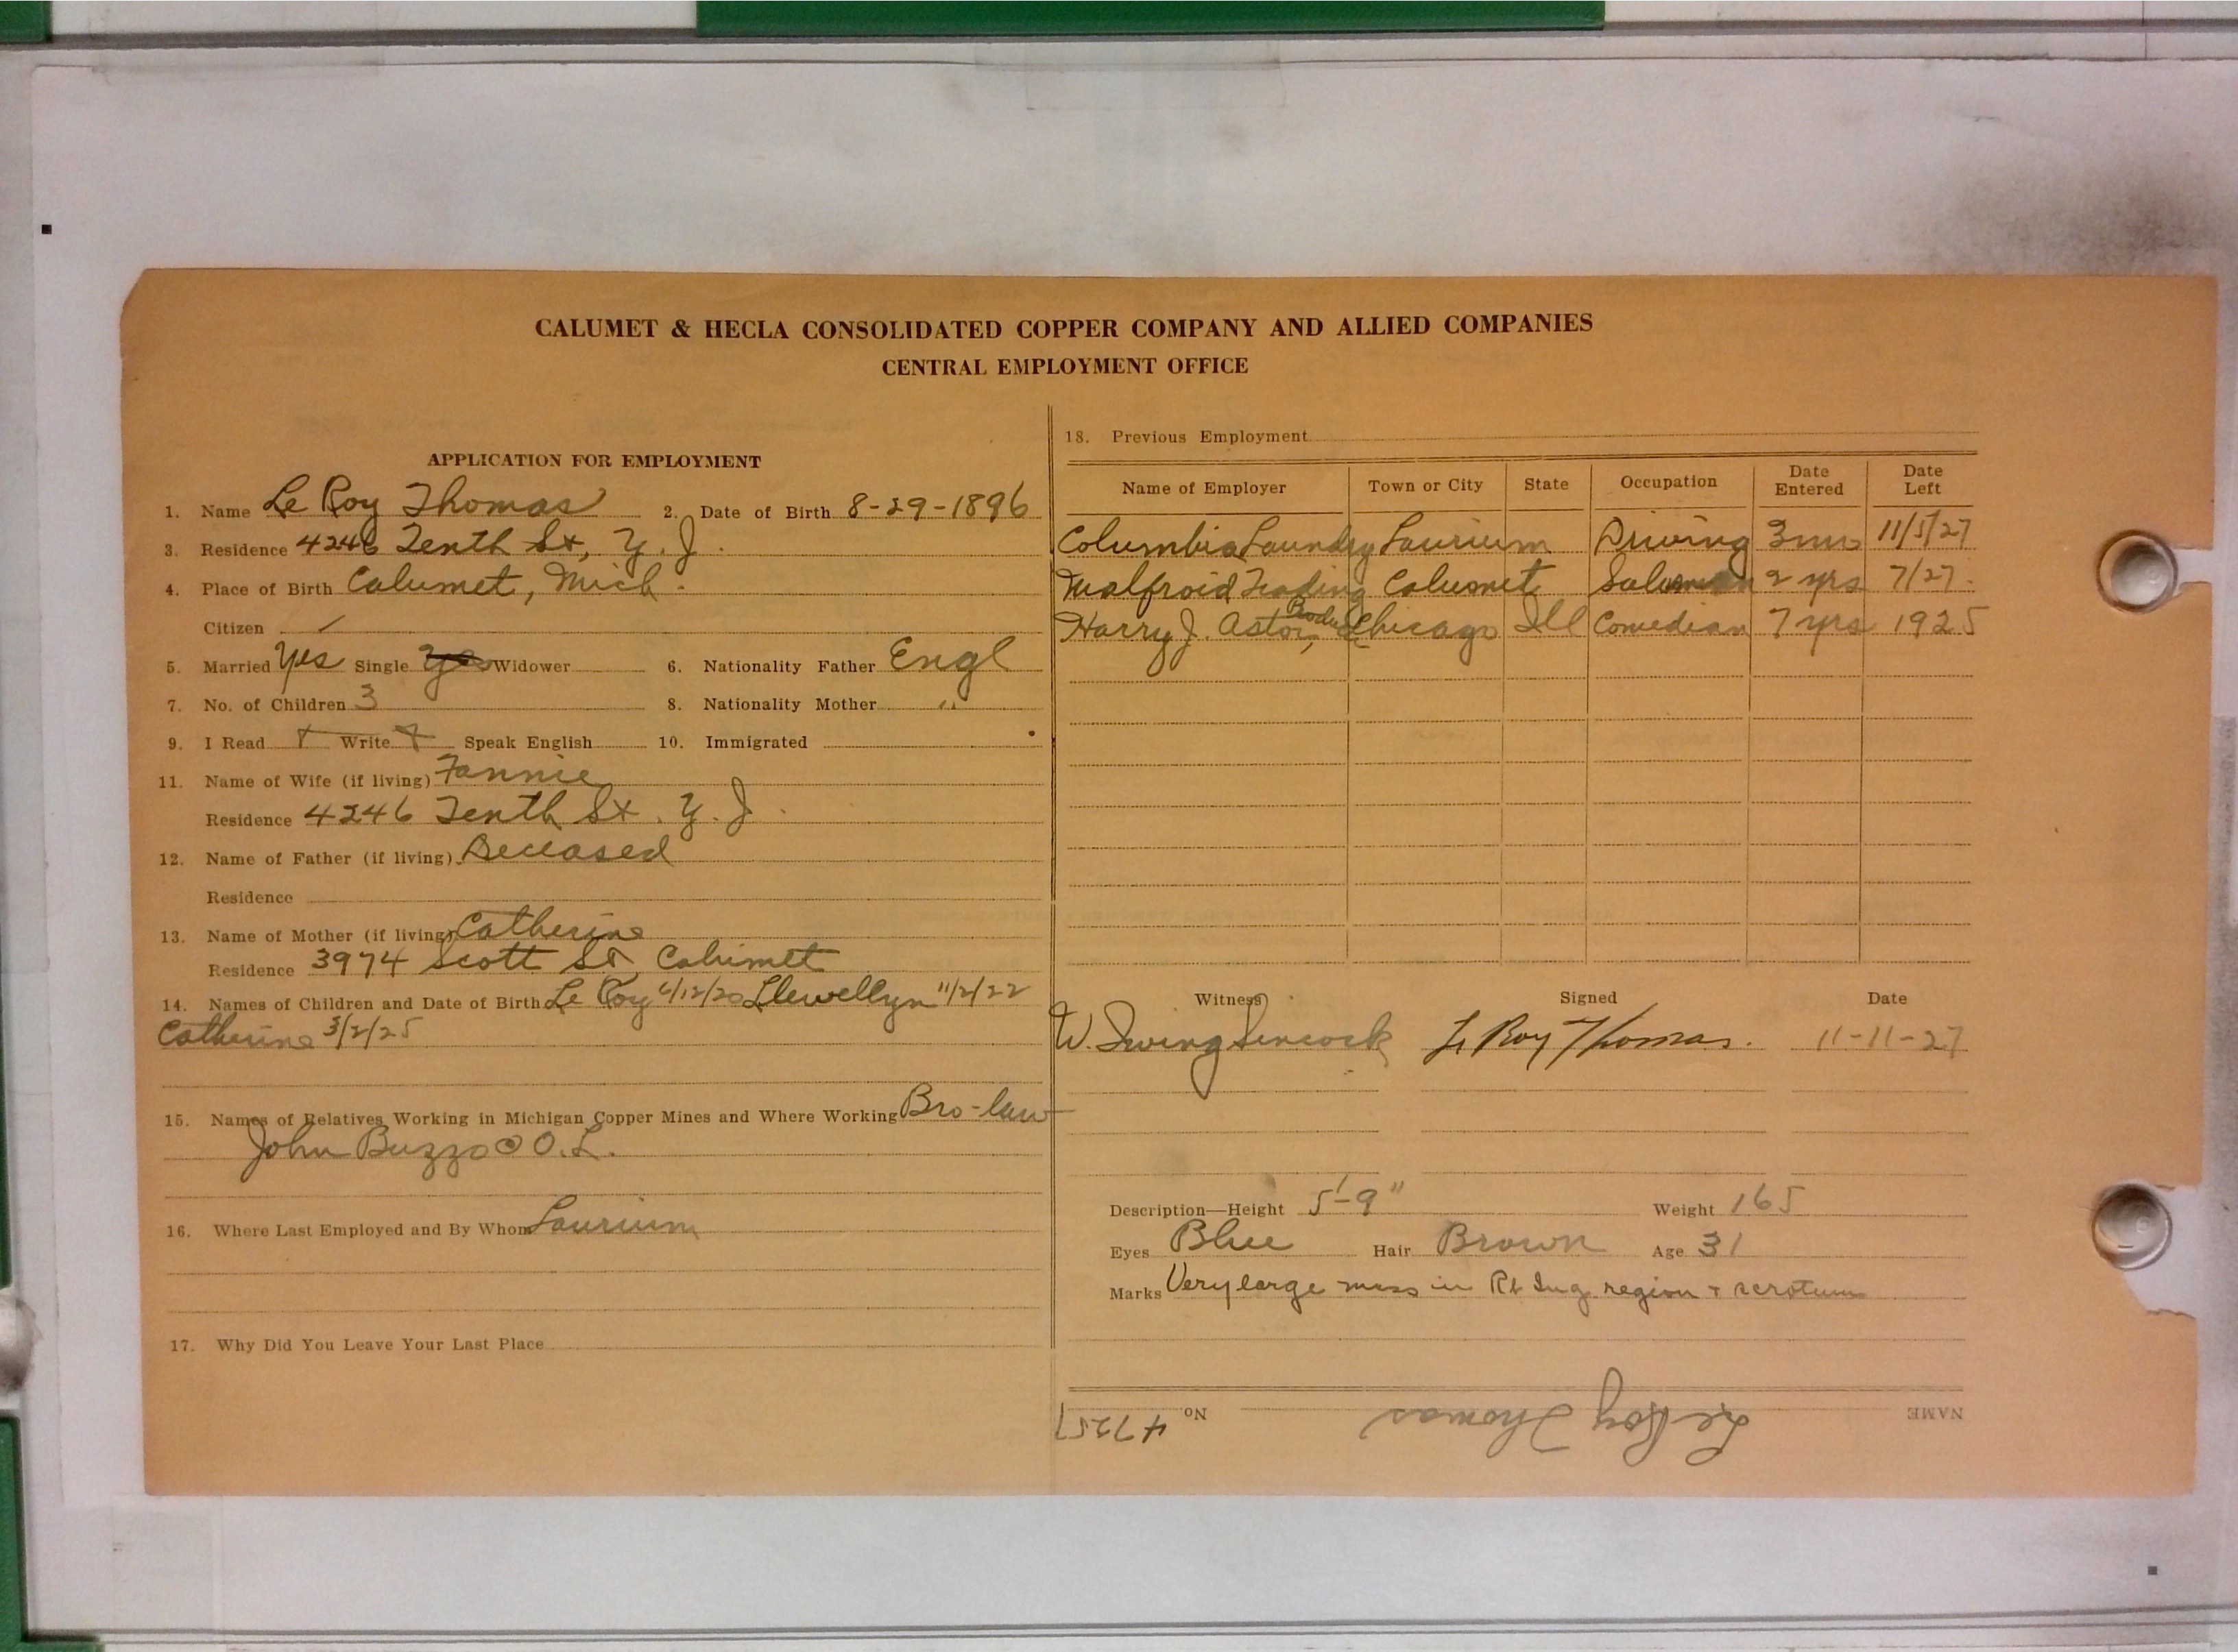 CALUMET & HECLA CONSOLIDATED COPPER COMPANY AND ALLIED COMPANIES
CENTRAL EMPLOYMENT OFFICE
APPLICATION FOR EMPLOYMENT
1. Name Le Roy Thomas 2. Date of Birth 8-29-1896
3. Residence 4246 Tenth St, Y. J.
4. Place of Birth Calumet, Mich.
Citizen /
5. Married Yes Single Yes Widower 6. Nationality Father Engl
7. No. of Children 3 8. Nationality Mother "
9. I Read Write Speak English 10. Immigrated
11. Name of Wife (if living) Fannie
Residence 4246 Tenth St. Y. J.
12. Name of Father (if living) Deceased
Residence
13. Name of Mother (if living) Catherine
Residence 3974 Scott St Calumet
14. Names of Children and Date of Birth Le Roy /12/20 Llewellyn 11/2/22
Catherine 3/2/25
15. Names of Relatives Working in Michigan Copper Mines and Where Working Bro-law
John Buzzo @ O.L.
16. Where Last Employed and By Whom Laurium
17. Why Did You Leave Your Last Place
18. Previous Employment
Name of Employer Town or City State Occupation Date Entered Date Left
Columbia Laundry Laurium Driving 3 mo 11/5/27
Malfroid Trading Calumet Salesman 2 yrs 7/27
Harry J. Astor, Chicago Ill Comedian 7 yrs 1925
Witness Signed Date
W. Irving Le Roy Thomas. 11-11-27
Description—Height 5'-9" Weight 165
Eyes Blue Hair Brown Age 31
Marks Very large mass in Rt Ing. region + scrotum
NAME Le Roy Thomas No. 47257